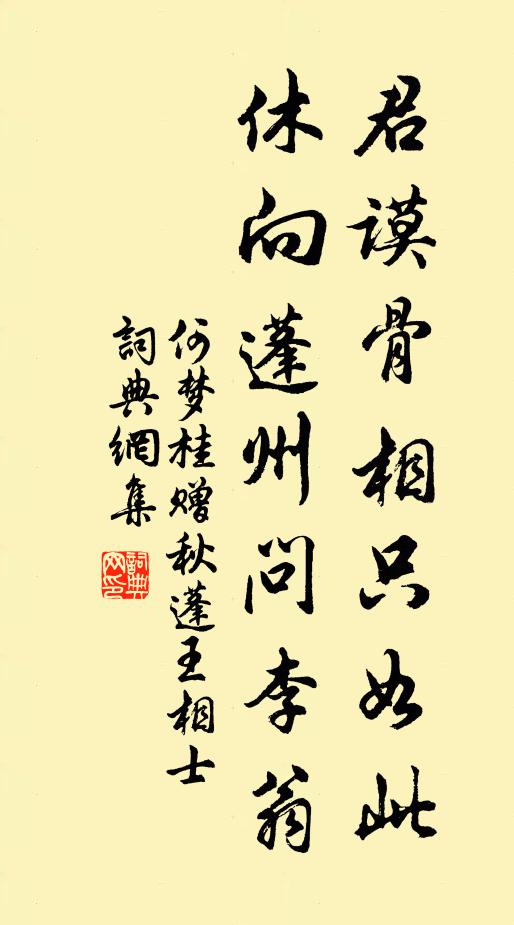 君谟骨相只如此
休向蓬州问李翁
何梦桂赠秋蓬王相士
詞典網集
詞典
网印